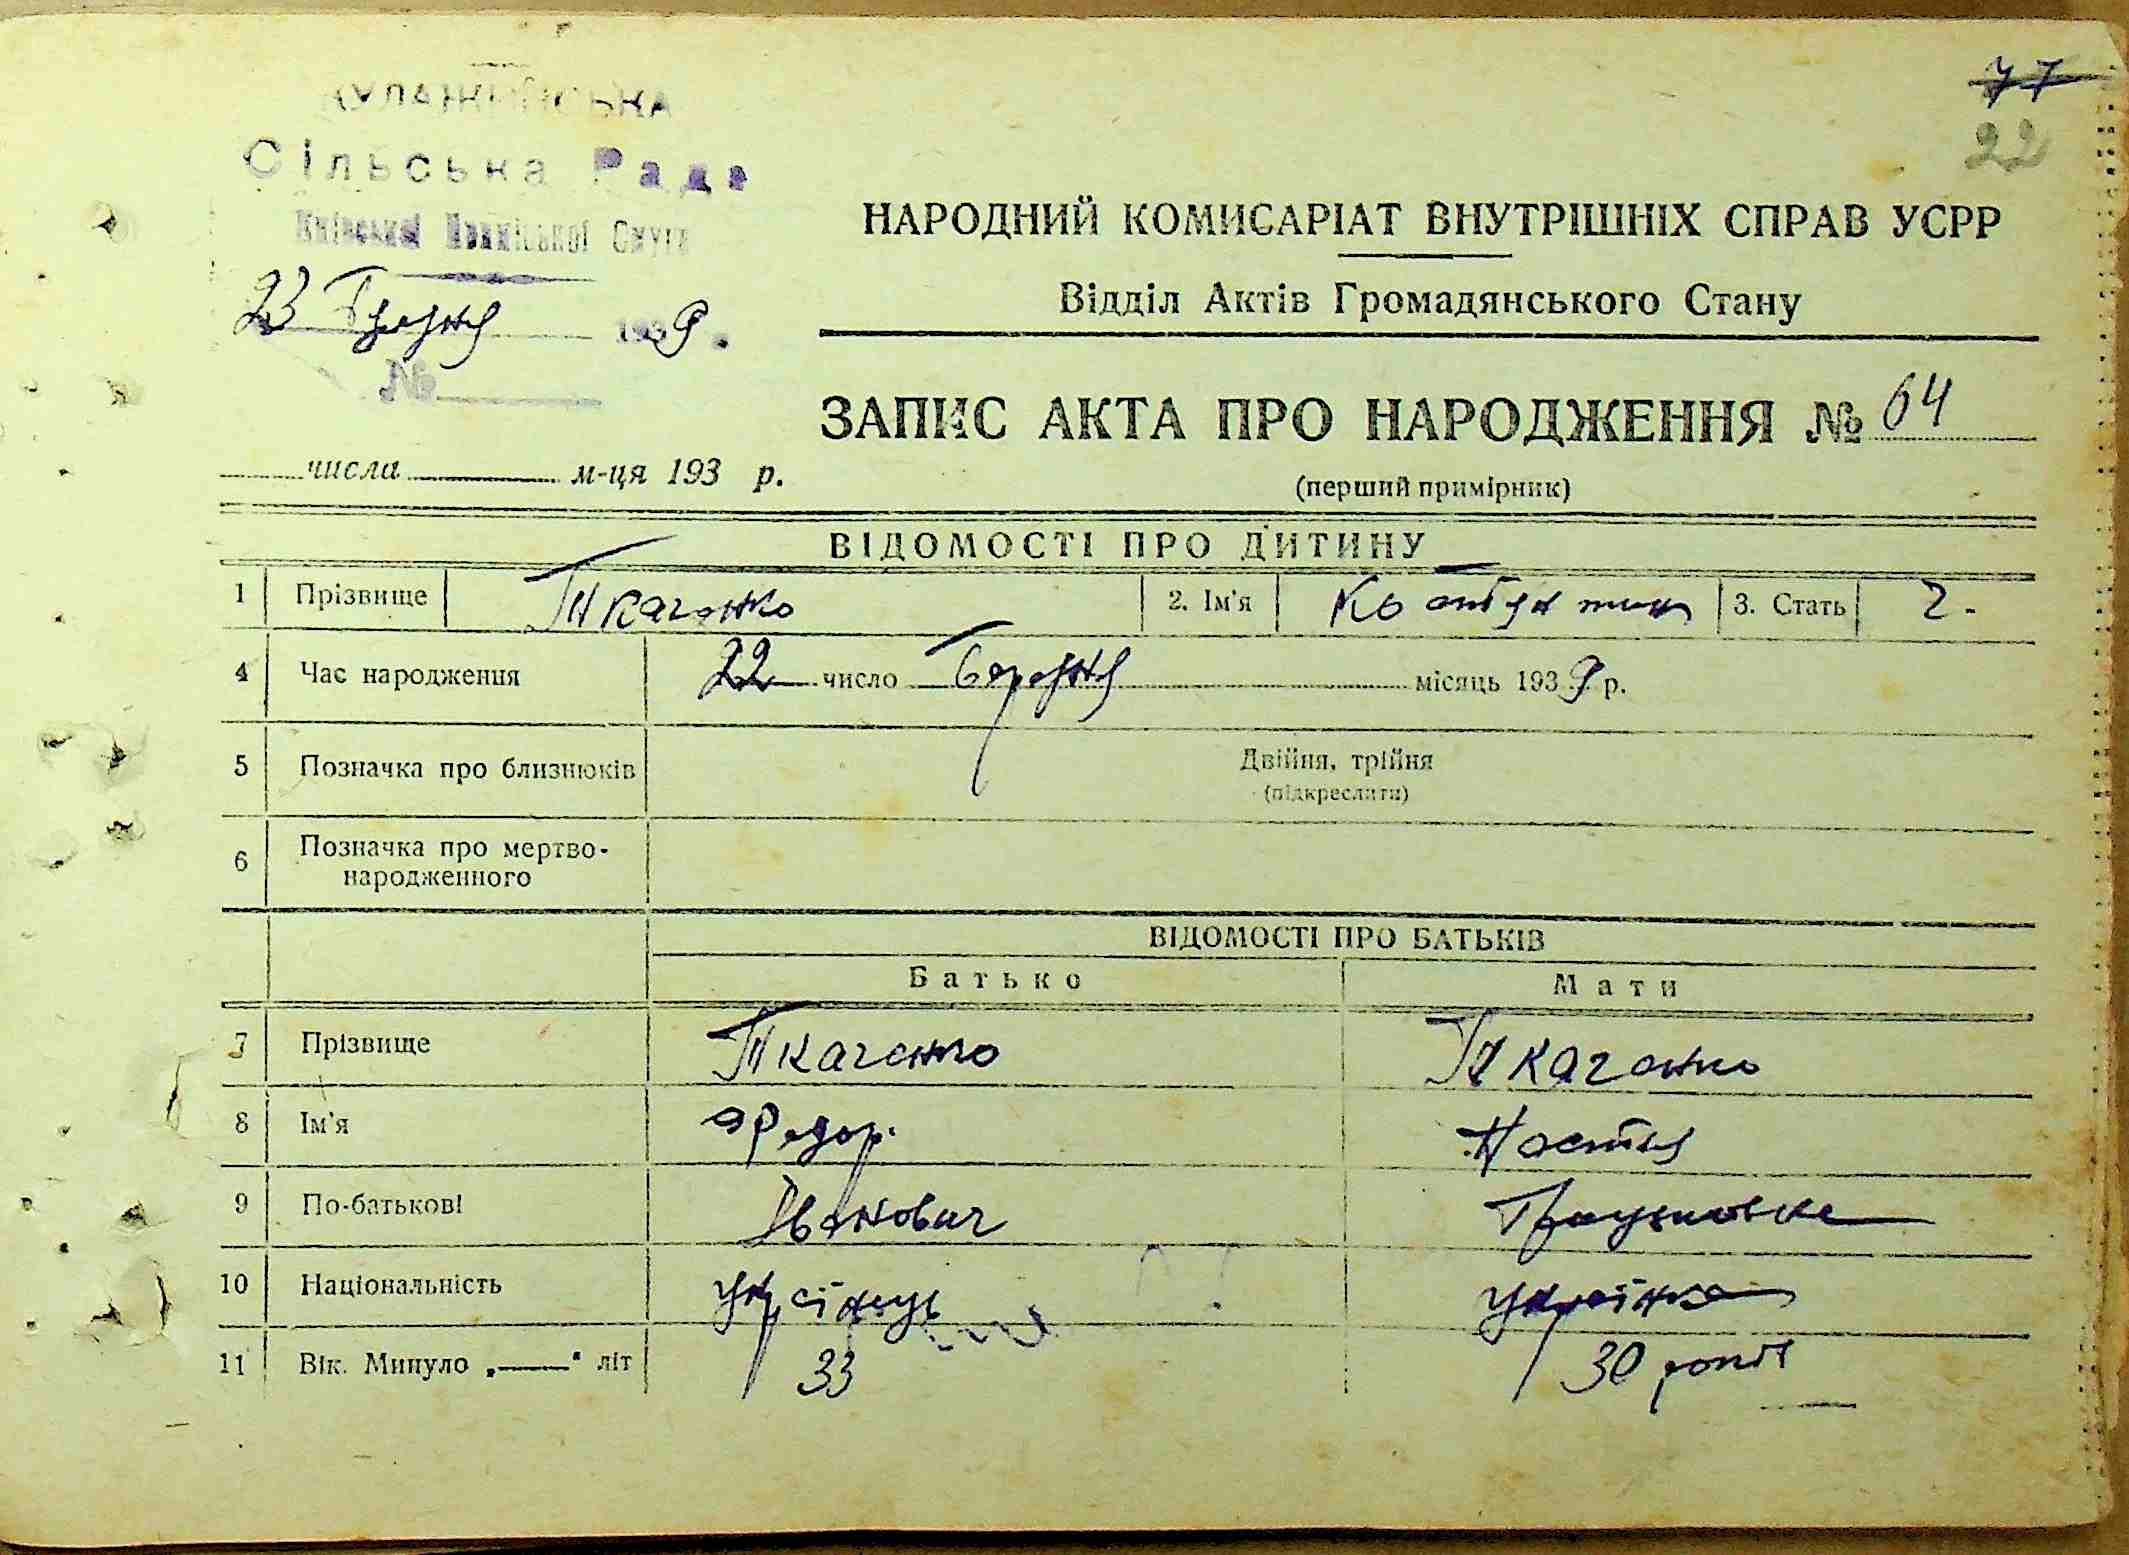 77
22
КУЛАЖИНСЬКА
Сільська Рада
Київської Приміської Смуги
23 Грудня 1939.
№
НАРОДНИЙ КОМИСАРІАТ ВНУТРІШНІХ СПРАВ УСРР
Відділ Актів Громадянського Стану
ЗАПИС АКТА ПРО НАРОДЖЕННЯ № 64
числа м-ця 193 р.
(перший примірник)
ВІДОМОСТІ ПРО ДИТИНУ
1 Прізвище Ткаченко 2. Ім'я 3. Стать ч.
4 Час народження 22 число місяць 1939 р.
5 Позначка про близнюків Двійня, трійня
(підкреслити)
6 Позначка про мертво-
народженного
ВІДОМОСТІ ПРО БАТЬКІВ
Батько Мати
7 Прізвище Ткаченко Ткаченко
8 Ім'я Федор. Настя
9 По-батькові Іванович
10 Національність українець українка
11 Вік. Минуло „——" літ 33 30 років